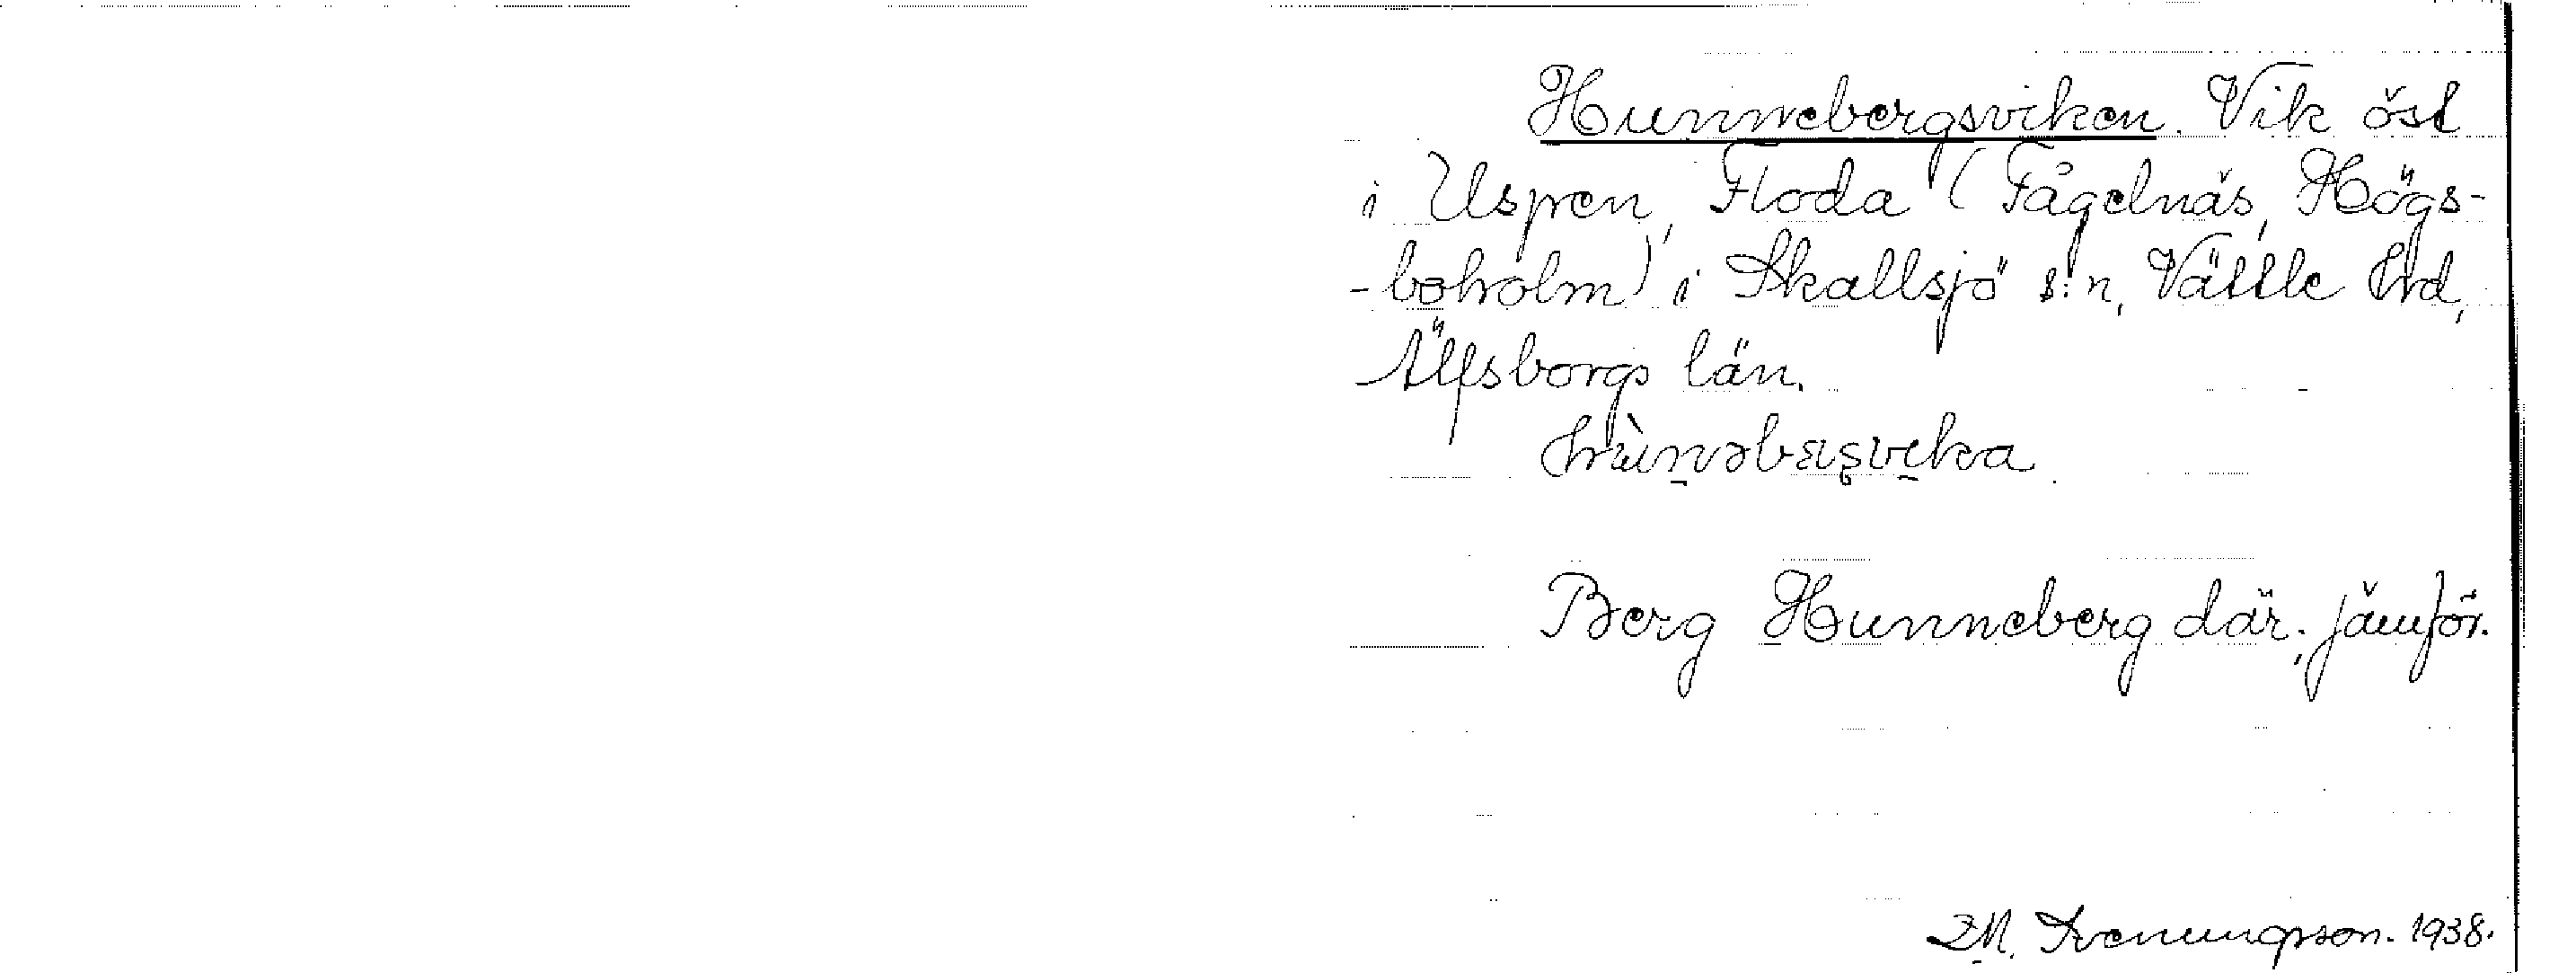 Hunnebergsviken. Vik öst
i Uspen, Floda (Fågelnäs, Högs-
-boholm) i Skallsjö s:n, Vättle hd,
Älfsborgs län.
Berg Hunneberg där; jämför.
Svenungsson. 1938.